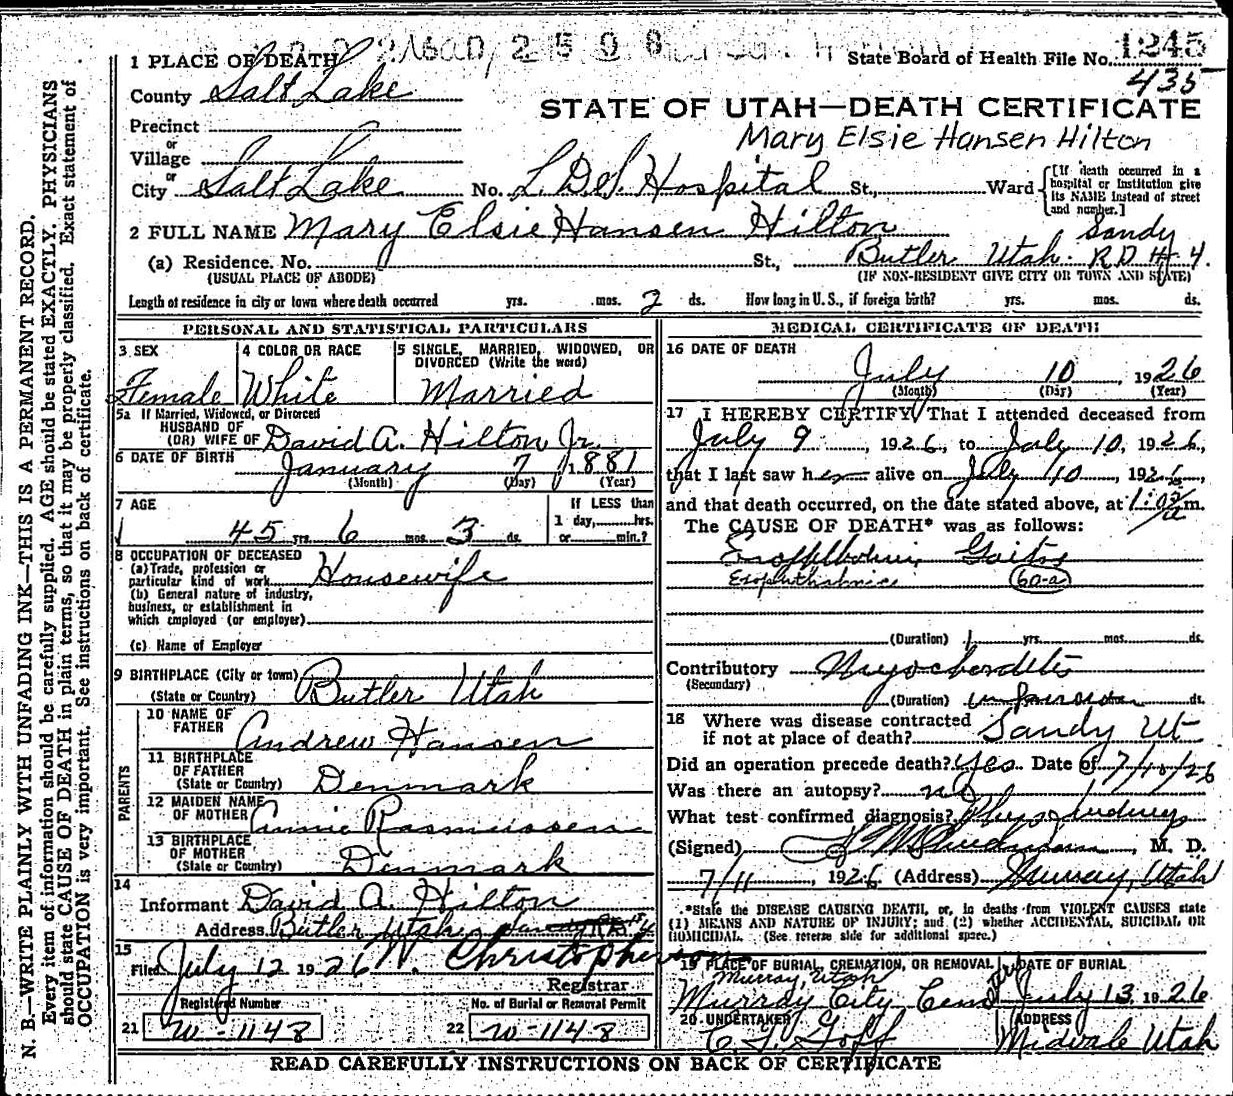 2598
1 PLACE OF DEATH
State Board of Health File No. 1245
435
County Salt Lake
STATE OF UTAH—DEATH CERTIFICATE
Precinct
Mary Elsie Hansen Hilton
or
Village
or
City Salt Lake No. L.D.S. Hospital St., Ward
[If death occurred in a hospital or institution give its NAME instead of street and number.]
2 FULL NAME Mary Elsie Hansen Hilton
Sandy
(a) Residence. No. St., Butler Utah. R.D. # 4.
(USUAL PLACE OF ABODE) (IF NON-RESIDENT GIVE CITY OR TOWN AND STATE)
Length of residence in city or town where death occurred yrs. mos. 2 ds. How long in U.S., if foreign birth? yrs. mos. ds.
PERSONAL AND STATISTICAL PARTICULARS
3 SEX
Female
4 COLOR OR RACE
White
5 SINGLE, MARRIED, WIDOWED, OR DIVORCED (Write the word)
Married
5a If Married, Widowed, or Divorced
HUSBAND OF
(OR) WIFE OF David A. Hilton Jr.
6 DATE OF BIRTH January 7 1881
(Month) (Day) (Year)
7 AGE
45 yrs. 6 mos. 3 ds.
If LESS than
1 day, hrs.
or min.?
8 OCCUPATION OF DECEASED
(a) Trade, profession or
particular kind of work Housewife
(b) General nature of industry,
business, or establishment in
which employed (or employer)
(c) Name of Employer
9 BIRTHPLACE (City or town)
(State or Country) Butler Utah
PARENTS
10 NAME OF
FATHER Andrew Hansen
11 BIRTHPLACE
OF FATHER
(State or Country) Denmark
12 MAIDEN NAME
OF MOTHER Annie Rasmussen
13 BIRTHPLACE
OF MOTHER
(State or Country) Denmark
14
Informant David A. Hilton
Address Butler Utah
15
Filed July 12 1926 Christopherson
Registrar
Registered Number
21 W-1148
No. of Burial or Removal Permit
22 W-1148
MEDICAL CERTIFICATE OF DEATH
16 DATE OF DEATH
July 10, 1926
(Month) (Day) (Year)
17 I HEREBY CERTIFY, That I attended deceased from
July 9, 1926, to July 10, 1926,
that I last saw her alive on July 10, 1926,
and that death occurred, on the date stated above, at m.
The CAUSE OF DEATH* was as follows:
Goitre
60-a
(Duration) 1 yrs. mos. ds.
Contributory
(Secondary)
(Duration) ds.
18 Where was disease contracted
if not at place of death? Sandy Ut
Did an operation precede death? Yes Date of 7/10/26
Was there an autopsy? no
What test confirmed diagnosis?
(Signed) M. D.
7/11, 1926 (Address) Murray, Utah
*State the DISEASE CAUSING DEATH, or, in deaths from VIOLENT CAUSES state
(1) MEANS AND NATURE OF INJURY; and (2) whether ACCIDENTAL, SUICIDAL OR
HOMICIDAL. (See reverse side for additional space.)
19 PLACE OF BURIAL, CREMATION, OR REMOVAL
Murray, Utah
Murray City Cemetery
DATE OF BURIAL
July 13 1926
20 UNDERTAKER
Goff
ADDRESS
Midvale Utah
READ CAREFULLY INSTRUCTIONS ON BACK OF CERTIFICATE
N. B.—WRITE PLAINLY WITH UNFADING INK—THIS IS A PERMANENT RECORD.
Every item of information should be carefully supplied. AGE should be stated EXACTLY. PHYSICIANS
should state CAUSE OF DEATH in plain terms, so that it may be properly classified. Exact statement of
OCCUPATION is very important. See instructions on back of certificate.